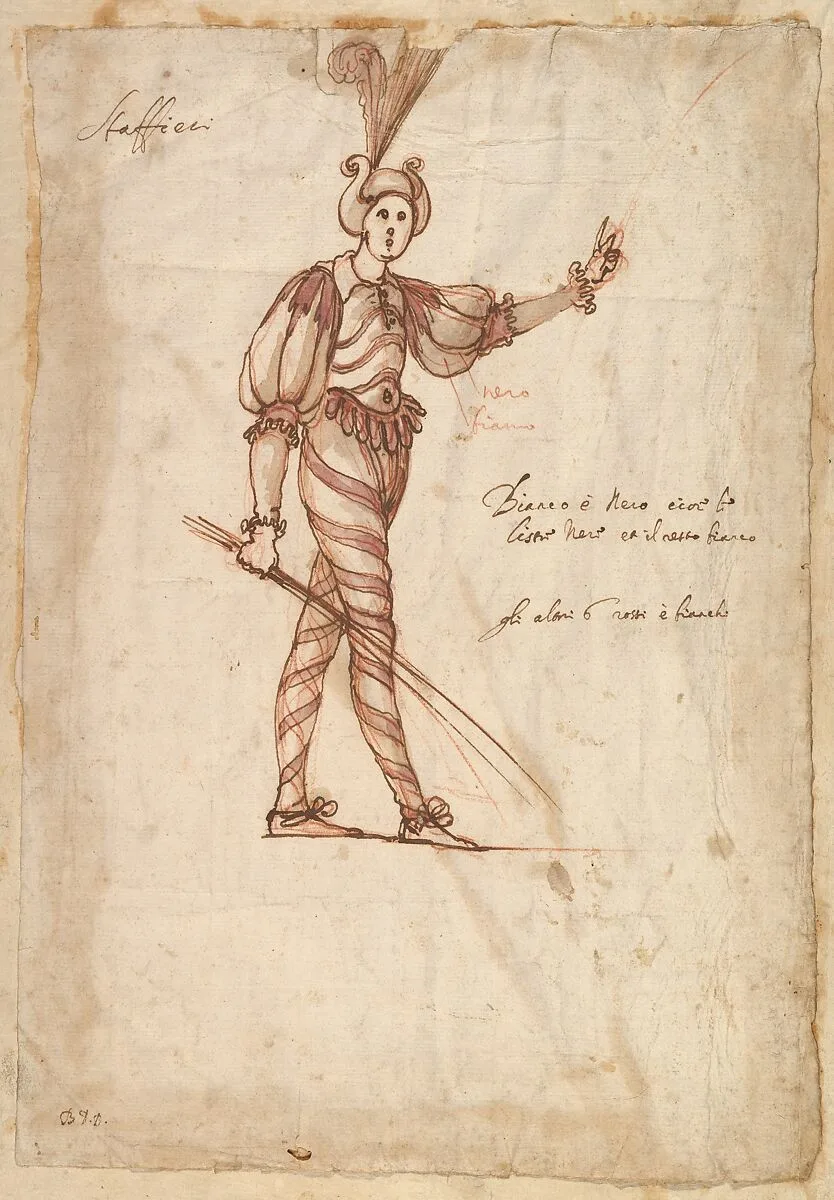 Staffieri
nero
bianco
Bianco è Nero cioè le
liste Nere et il resto bianco
gli altri 6 rossi è bianchi